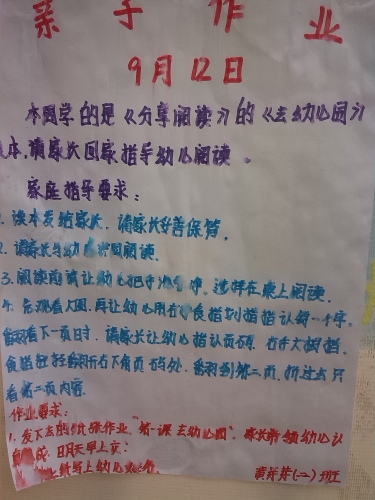 亲子作业
9月12日
本周学的是《分享阅读》的《去幼儿园》
本，请家长回家指导幼儿阅读。
家庭指导要求：
1.读本发给家长，请家长妥善保管。
2.请家长与幼儿 共同阅读。
3.阅读时请让幼儿把手 ，选择在桌上阅读。
4.先观看大图，再让幼儿用右手食指划指指认每一个字。
翻看下一页时，请家长让幼儿指认页码，右手大拇指、
食指轻轻翻折右下角页码处，翻到第二页，折过去只
看第二页内容。
作业要求：
1.发下去的 作业“第一课去幼儿园”，家长带领幼儿认
，明天早上交
上幼儿
黄羊羊(二)班